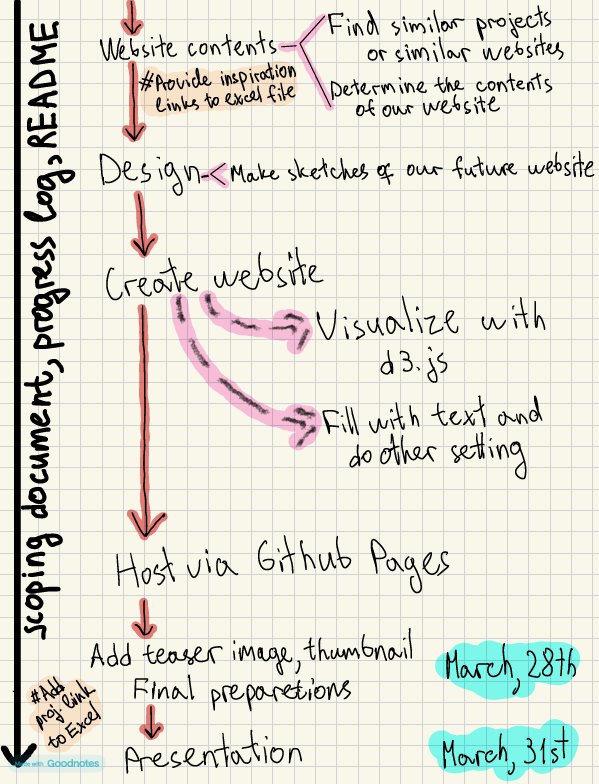 scoping document, progress log, README
Website contents
Find similar projects
or similar websites
Determine the contents
of our website
#Provide inspiration
links to excel file
Design
Make sketches of our future website
Create website
Visualize with
d3.js
Fill with text and
do other setting
Host via Github Pages
Add teaser image, thumbnail
Final prepar​etions
March, 28th
#Add
proj. link
to Excel
Presentation
March, 31st
Made with Goodnotes